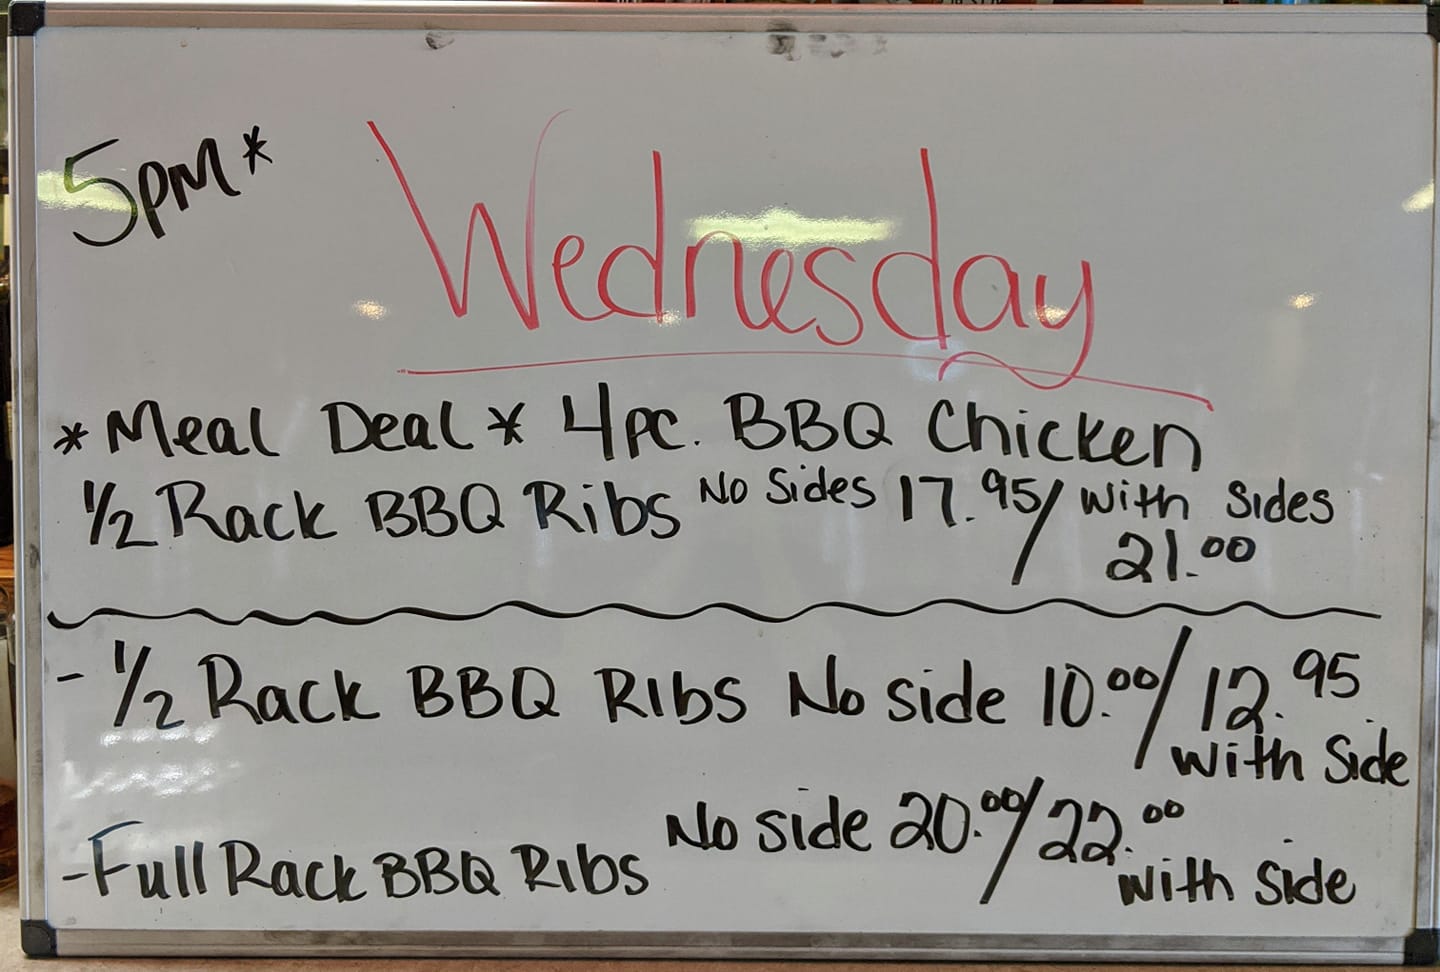 5pm*
Wednesday
* Meal Deal * 4pc. BBQ Chicken
1/2 Rack BBQ Ribs No Sides 17.95/ with sides
21.00
- 1/2 Rack BBQ Ribs No side 10.00/12.95
with side
No side 20.00/22.00
- Full Rack BBQ Ribs
with side